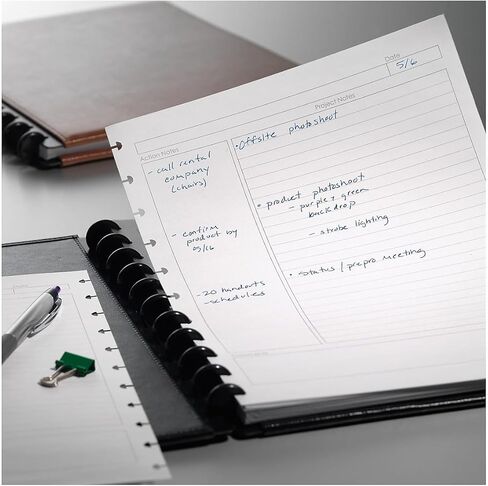 Date
5/6
Project Notes
Action Notes
• Offsite photoshoot
- call rental
company
(chairs)
• product photoshoot
- purple & green
backdrop
- strobe lighting
- confirm
product by
05/16
• Status / prepro meeting
- 20 handouts
- schedules